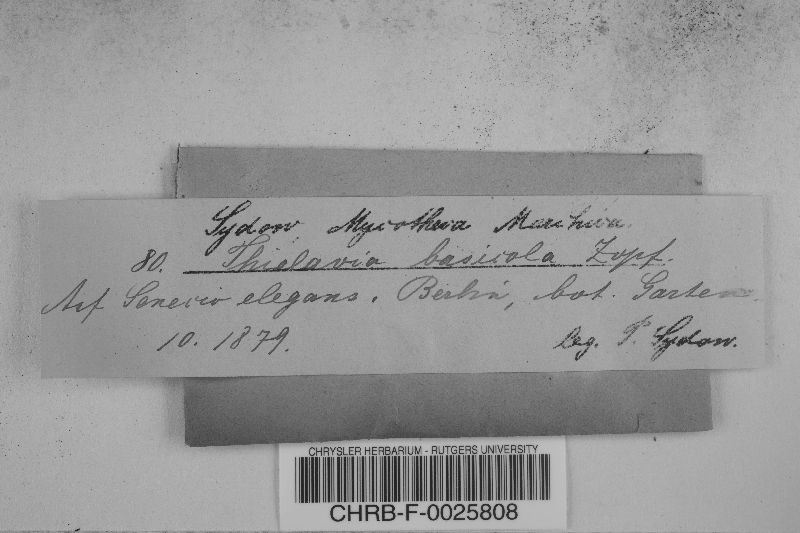 Sydow Mycotheca Marchica.
80. Thielavia basicola Zopf.
Auf Senecio elegans. Berlin, bot. Garten.
10. 1879. Leg. P. Sydow.
CHRYSLER HERBARIUM - RUTGERS UNIVERSITY
CHRB-F-0025808